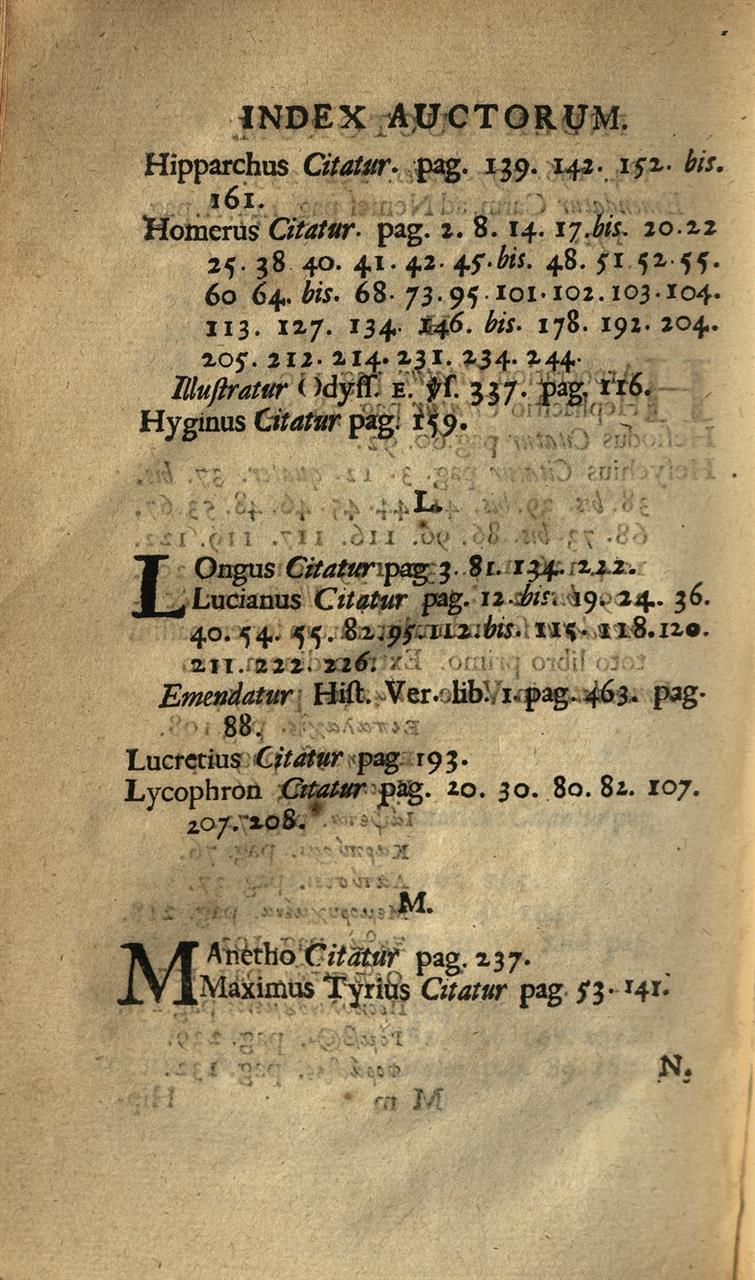 INDEX AUCTORUM.
Hipparchus Citatur. pag. 139. 142. 152. bis.
161.
Homerus Citatur. pag. 2. 8. 14. 17. bis. 20. 22
25. 38 40. 41. 42. 45. bis. 48. 51 52. 55.
60 64. bis. 68. 73. 95. 101. 102. 103. 104.
113. 127. 134. 146. bis. 178. 192. 204.
205. 212. 214. 231. 234. 244.
Illuſtratur Odyſſ. E. ꝟſ. 337. pag. 116.
Hyginus Citatur pag. 159.
L.
LOngus Citatur pag 3. 81. 134. 222.
Lucianus Citatur pag. 12. bis. 19. 24. 36.
40. 54. 55. 82. 95. 112. bis. 115. 118. 120.
211. 222. 226.
Emendatur Hiſt. Ver. lib. 1. pag. 463. pag.
88.
Lucretius Citatur pag 193.
Lycophron Citatur pag. 20. 30. 80. 82. 107.
207. 208.
M.
MAnetho Citatur pag. 237.
Maximus Tyrius Citatur pag 53. 141.
N.